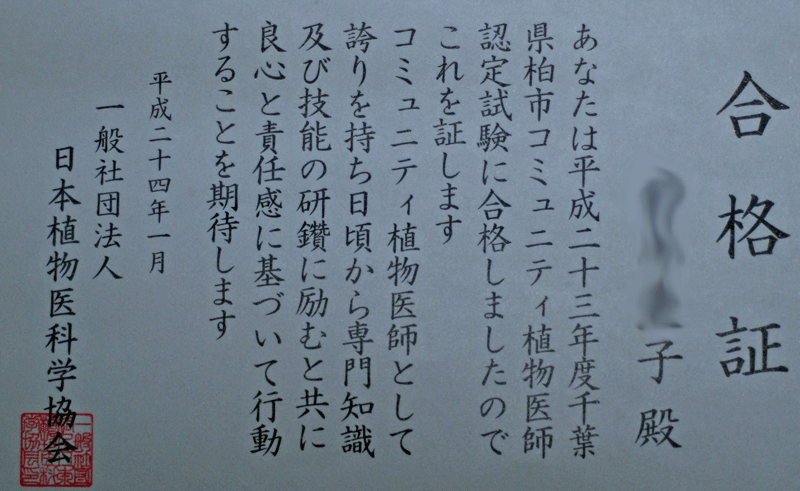 合格証
子 殿
あなたは平成二十三年度千葉
県柏市コミュニティ植物医師
認定試験に合格しましたので
これを証します
コミュニティ植物医師として
誇りを持ち日頃から専門知識
及び技能の研鑽に励むと共に
良心と責任感に基づいて行動
することを期待します
平成二十四年一月
一般社団法人
日本植物医科学協会